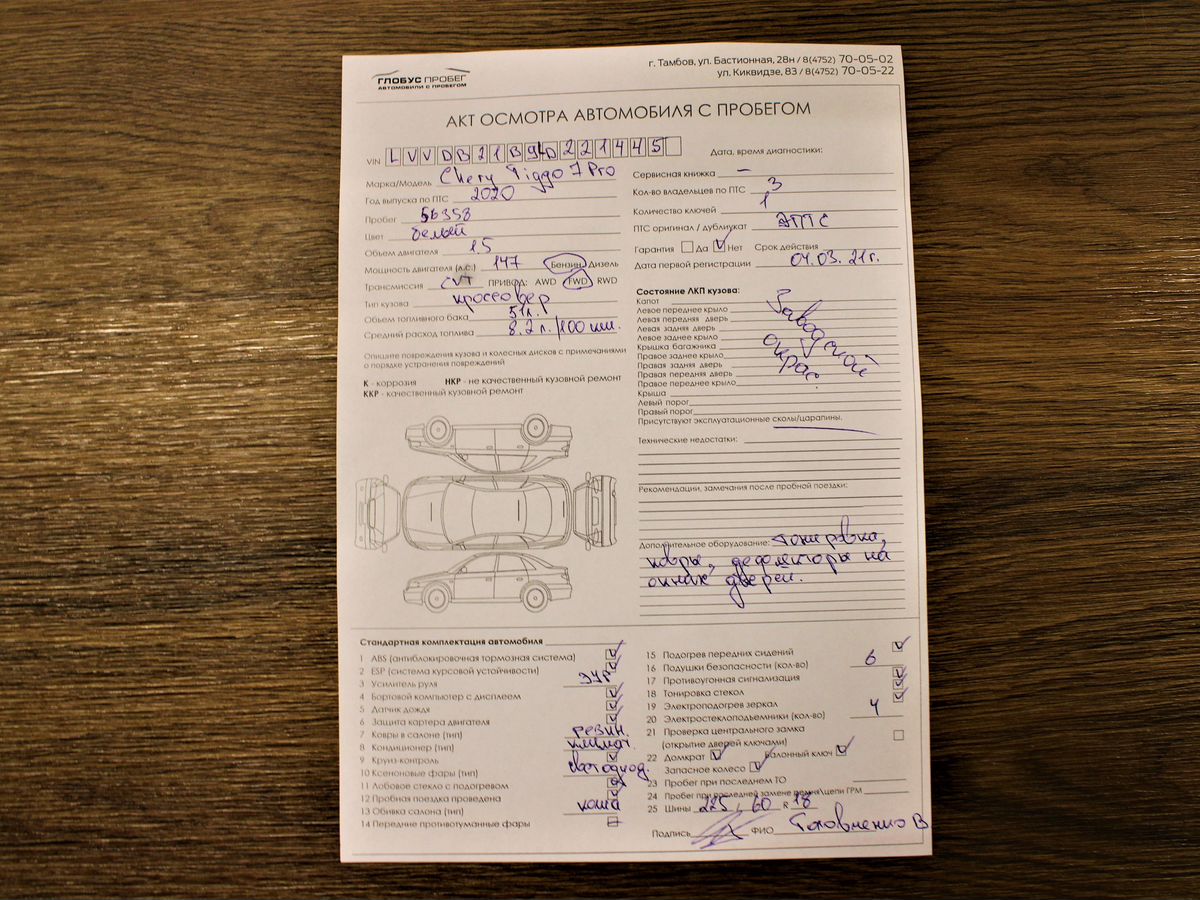 ГЛОБУС ПРОБЕГ
АВТОМОБИЛИ С ПРОБЕГОМ
г. Тамбов, ул. Бастионная, 28н / 8(4752) 70-05-02
ул. Киквидзе, 83 / 8(4752) 70-05-22
АКТ ОСМОТРА АВТОМОБИЛЯ С ПРОБЕГОМ
VIN LVVDB21B9LD221445
Марка/Модель Chery Tiggo 7 Pro
Год выпуска по ПТС 2020
Пробег 56358
Цвет белый
Объем двигателя 1.5
Мощность двигателя (л.с.) 147 Бензин Дизель
Трансмиссия CVT ПРИВОД: AWD FWD RWD
Тип кузова кроссовер
Объем топливного бака 51л.
Средний расход топлива 8.2 л./100 км.
Опишите повреждения кузова и колесных дисков с примечаниями
о порядке устранения повреждений
К - коррозия НКР - не качественный кузовной ремонт
ККР - качественный кузовной ремонт
Дата, время диагностики:
Сервисная книжка –
Кол-во владельцев по ПТС 3
Количество ключей 1
ПТС оригинал / дубликат ЭПТС
Гарантия Да Нет Срок действия
Дата первой регистрации 04.03.21г.
Состояние ЛКП кузова:
Капот
Левое переднее крыло
Левая передняя дверь
Левая задняя дверь
Левое заднее крыло
Крышка багажника
Правое заднее крыло
Правая задняя дверь
Правая передняя дверь
Правое переднее крыло
Крыша
Левый порог
Правый порог
Заводской
окрас.
Присутствуют эксплуатационные сколы/царапины.
Технические недостатки:
Рекомендации, замечания после пробной поездки:
Дополнительное оборудование: Тонировка,
ковры, дефлекторы на
окнах дверей.
Стандартная комплектация автомобиля
1 ABS (антиблокировочная тормозная система)
2 ESP (система курсовой устойчивости)
3 Усилитель руля ЭУР
4 Бортовой компьютер с дисплеем
5 Датчик дождя
6 Защита картера двигателя
7 Ковры в салоне (тип) резин.
8 Кондиционер (тип) климат.
9 Круиз-контроль
10 Ксеноновые фары (тип) светодиод.
11 Лобовое стекло с подогревом
12 Пробная поездка проведена
13 Обивка салона (тип) кожа
14 Передние противотуманные фары
15 Подогрев передних сидений
16 Подушки безопасности (кол-во) 6
17 Противоугонная сигнализация
18 Тонировка стекол
19 Электроподогрев зеркал
20 Электростеклоподъемники (кол-во) 4
21 Проверка центрального замка
(открытие дверей ключами)
22 Домкрат Балонный ключ
Запасное колесо
23 Пробег при последнем ТО
24 Пробег при последней замене ремня/цепи ГРМ
25 Шины 225 / 60 R 18
Подпись ФИО Головненко В